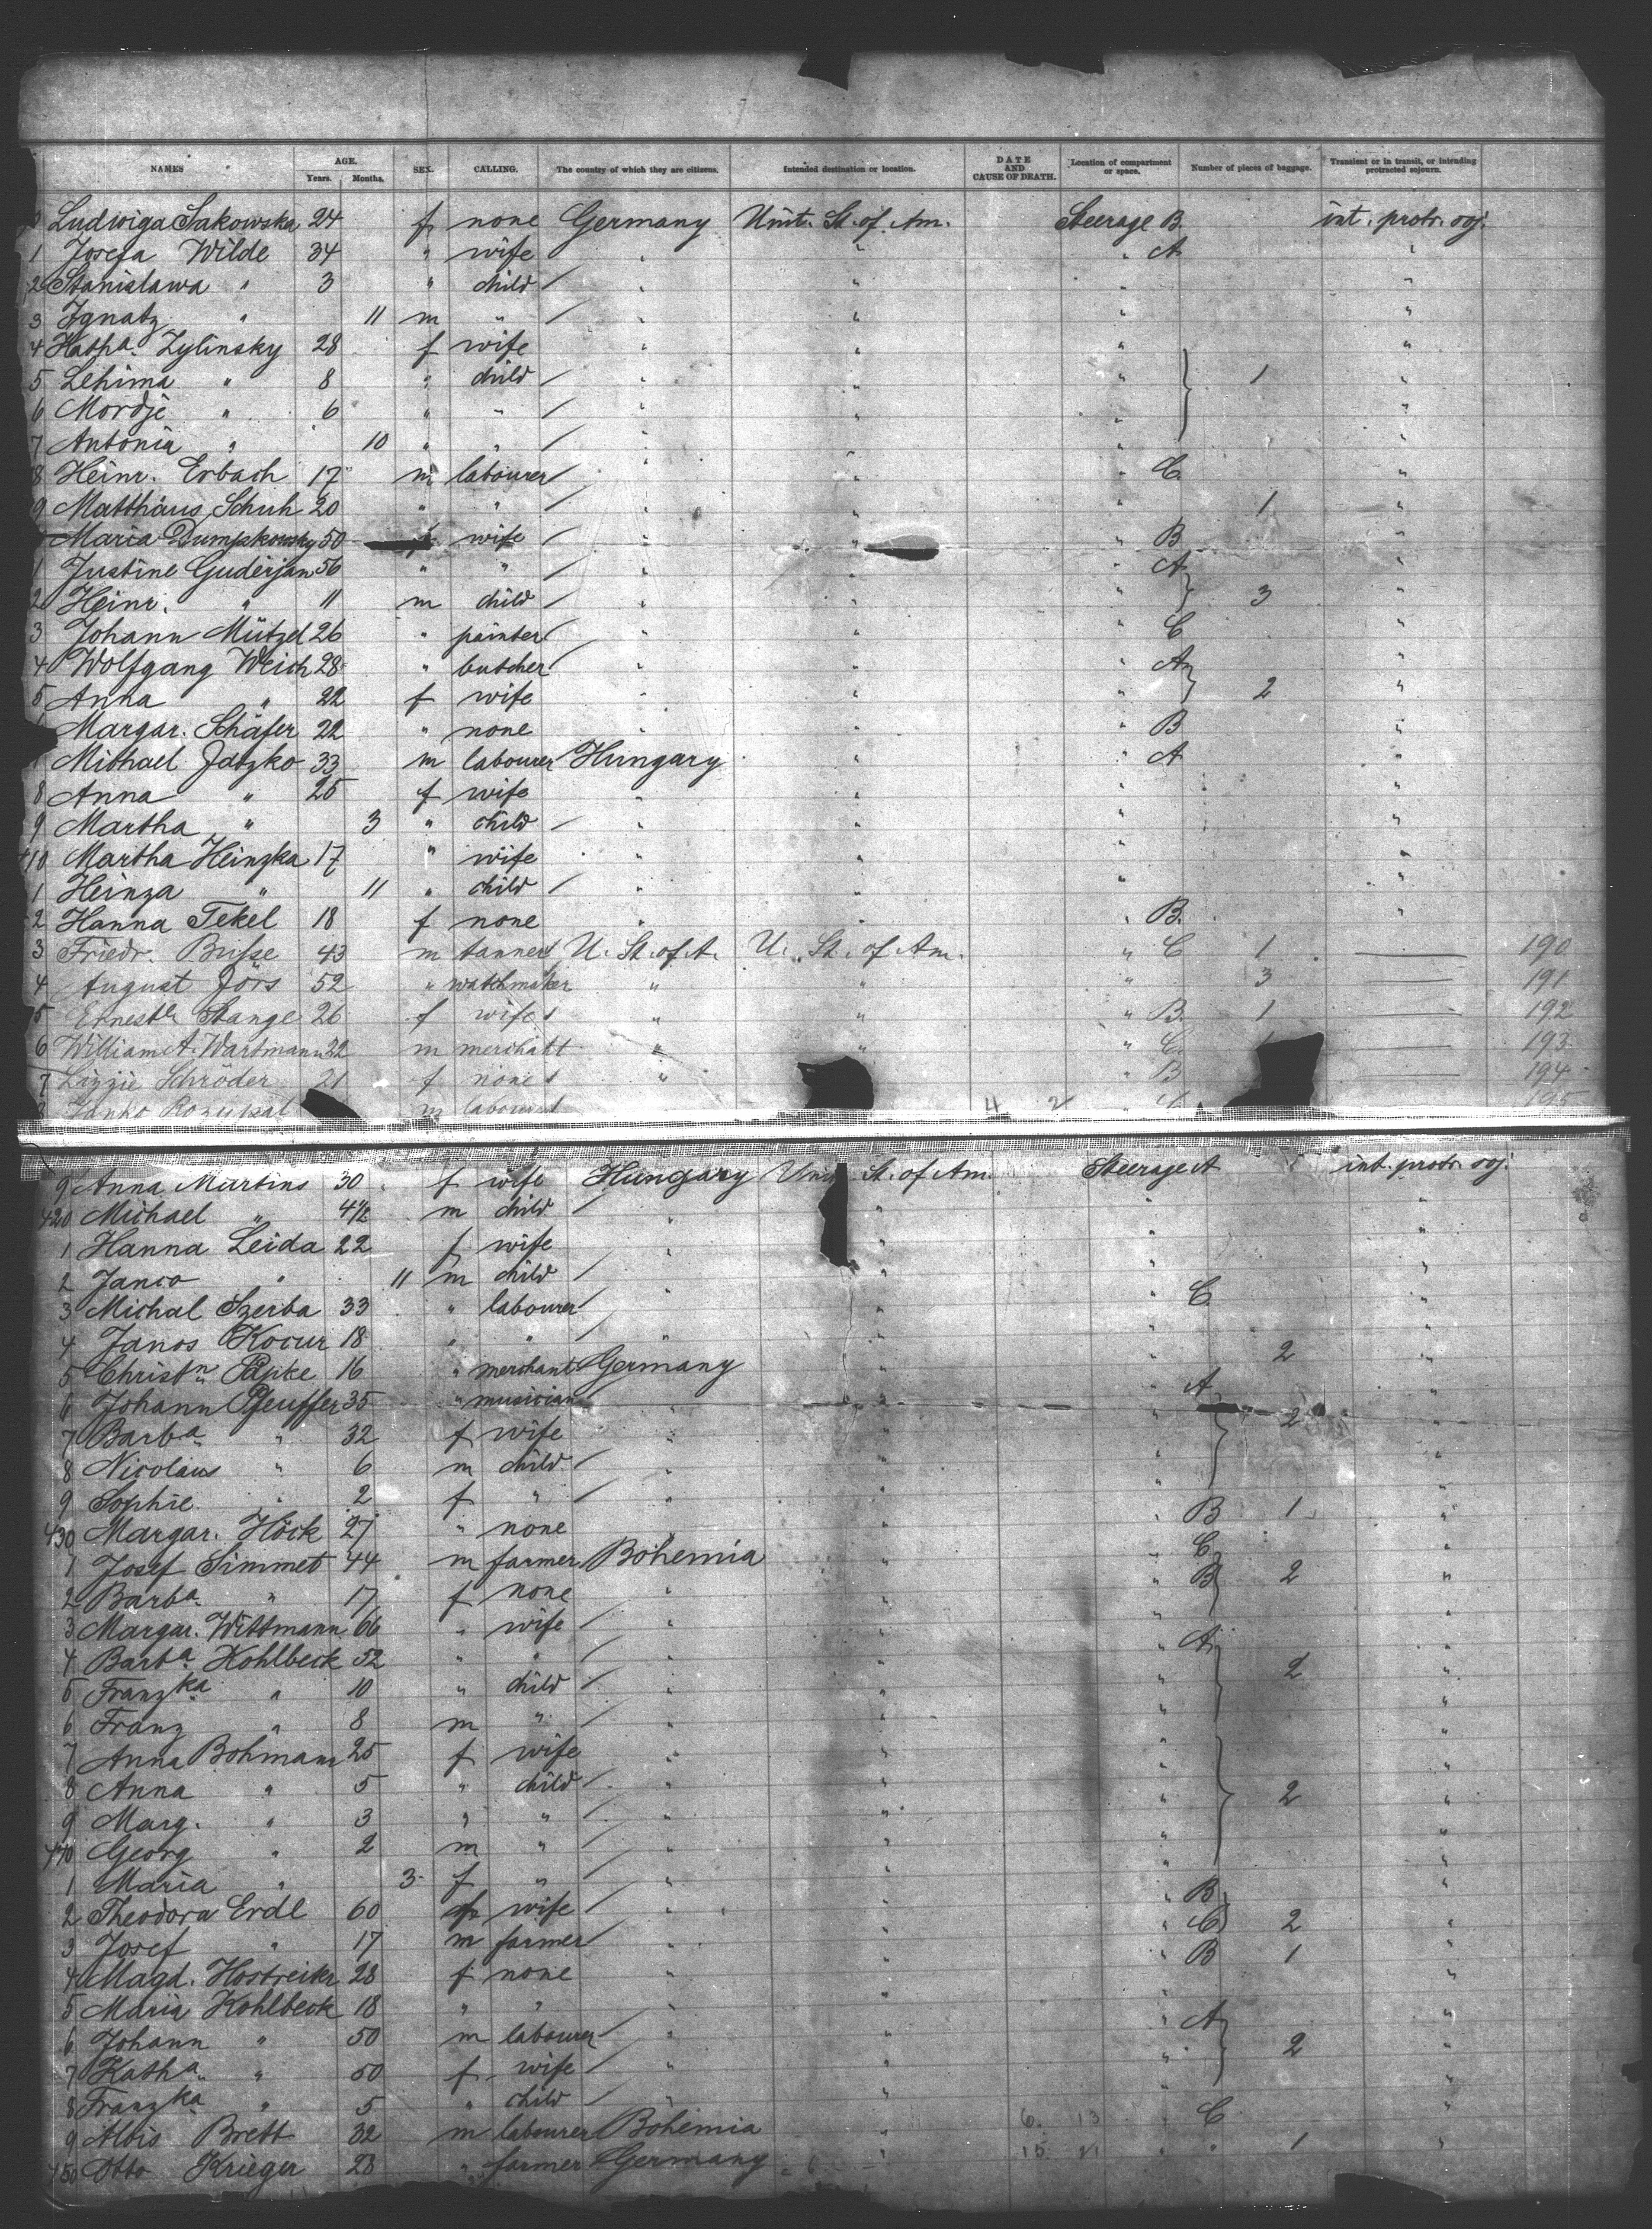 NAMES AGE. Years. Months. SEX. CALLING. The country of which they are citizens. Intended destination or location. DATE AND CAUSE OF DEATH. Location of compartment or space. Number of pieces of baggage. Transient or in transit, or intending protracted sojourn.
Ludwiga Sakowska 24 f none Germany Unit. St. of Am. Steerage B. int. protr. soj.
1 Josefa Wilde 34 " wife " " " A "
2 Stanislawa " 3 " child / " " " "
3 Ignatz " 11 m " / " " " "
4 Kath.a Zylinsky 28 f wife " " " "
5 Lehima " 8 " child / " " " 1 "
6 Mordje " 6 " " / " " " "
7 Antonia " 10 " " / " " " "
8 Heinr. Erbach 17 m labourer / " " " C. "
9 Matthäus Schuh 20 " " / " " " 1 "
Maria Dumpkowsky 50 f wife / " " " B "
1 Justine Guderjan 56 " " / " " " A "
2 Heinr. " 11 m child / " " " 3 "
3 Johann Mützel 26 " painter / " " " C "
4 Wolfgang Weich 28 " butcher / " " " A "
5 Anna " 22 f wife " " " 2 "
Margar. Schäfer 22 " none " " " B "
Michael Jatzko 33 m labourer Hungary " " A "
8 Anna " 25 f wife " " " "
9 Martha " 3 " child / " " " "
410 Martha Heinzka 17 " wife " " " "
1 Heinza " 11 " child / " " " "
2 Hanna Tekel 18 f none " " " B. "
3 Friedr. Busse 43 m tanner U. St. of A. U. St. of Am. " C 1 — 190
4 August Jörs 52 " watchmaker " " " 3 — 191
5 Ernest.e Stange 26 f wife " " " B. 1 — 192
6 William A. Wartmann 22 m merchant " " " C. 1 — 193
7 Lizzie Schröder 21 f none " " B — 194
8 Janko m labourer 4 2 195
9 Anna Martins 30 f wife Hungary Unit. St. of Am. Steerage A int. protr. soj.
420 Michael " 4½ m child / " " " "
1 Hanna Leida 22 f wife " " " "
2 Janco " 11 m child / " " " "
3 Michal Szerba 33 " labourer / " " " C. "
4 Janos Kocur 18 " " / " " " "
5 Christ.n Papke 16 " merchant Germany " " 2 "
6 Johann Pfeuffer 35 " musician " " " A "
7 Barb.a " 32 f wife " " " 2 "
8 Nicolaus " 6 m child / " " " "
9 Sophie " 2 f " / " " " "
430 Margar. Höck 27 " none " " " B 1 "
1 Josef Simmet 44 m farmer Bohemia " " C "
2 Barb.a " 17 f none " " " B 2 "
3 Margar. Wittmann 66 " wife / " " " "
4 Barb.a Kohlbeck 52 " " / " " " A "
5 Franz.ka " 10 " child / " " " 2 "
6 Franz " 8 m " / " " " "
7 Anna Bohmann 25 f wife " " " "
8 Anna " 5 " child / " " " "
9 Marg. " 3 " " / " " " 2 "
440 Georg " 2 m " / " " " "
1 Maria " 3 f " / " " " "
2 Theodora Erdl 60 f wife / " " " B "
3 Josef " 17 m farmer / " " " C 2 "
4 Magd. Hostreiter 28 f none " " " B 1 "
5 Maria Kohlbeck 18 " " " " " "
6 Johann " 50 m labourer / " " " A "
7 Kath.a " 50 f wife / " " " 2 "
8 Franz.ka " 5 " child / " " " "
9 Alois Brett 32 m labourer Bohemia " 6. 13 " C "
450 Otto Krieger 28 " farmer Germany " 15 21 " " 1 "